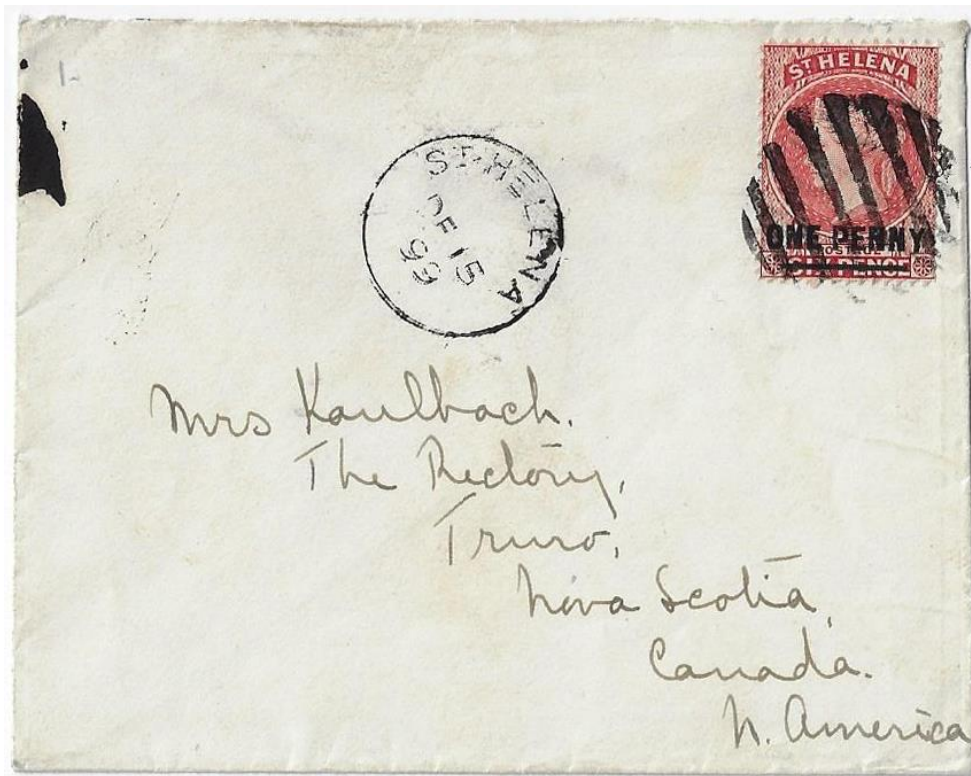 ST HELENA
ONE PENNY
POSTAGE
SIX PENCE
ST. HELENA
DE 15
99
Mrs Kaulbach.
The Rectory,
Truro,
Nova Scotia,
Canada.
N. America